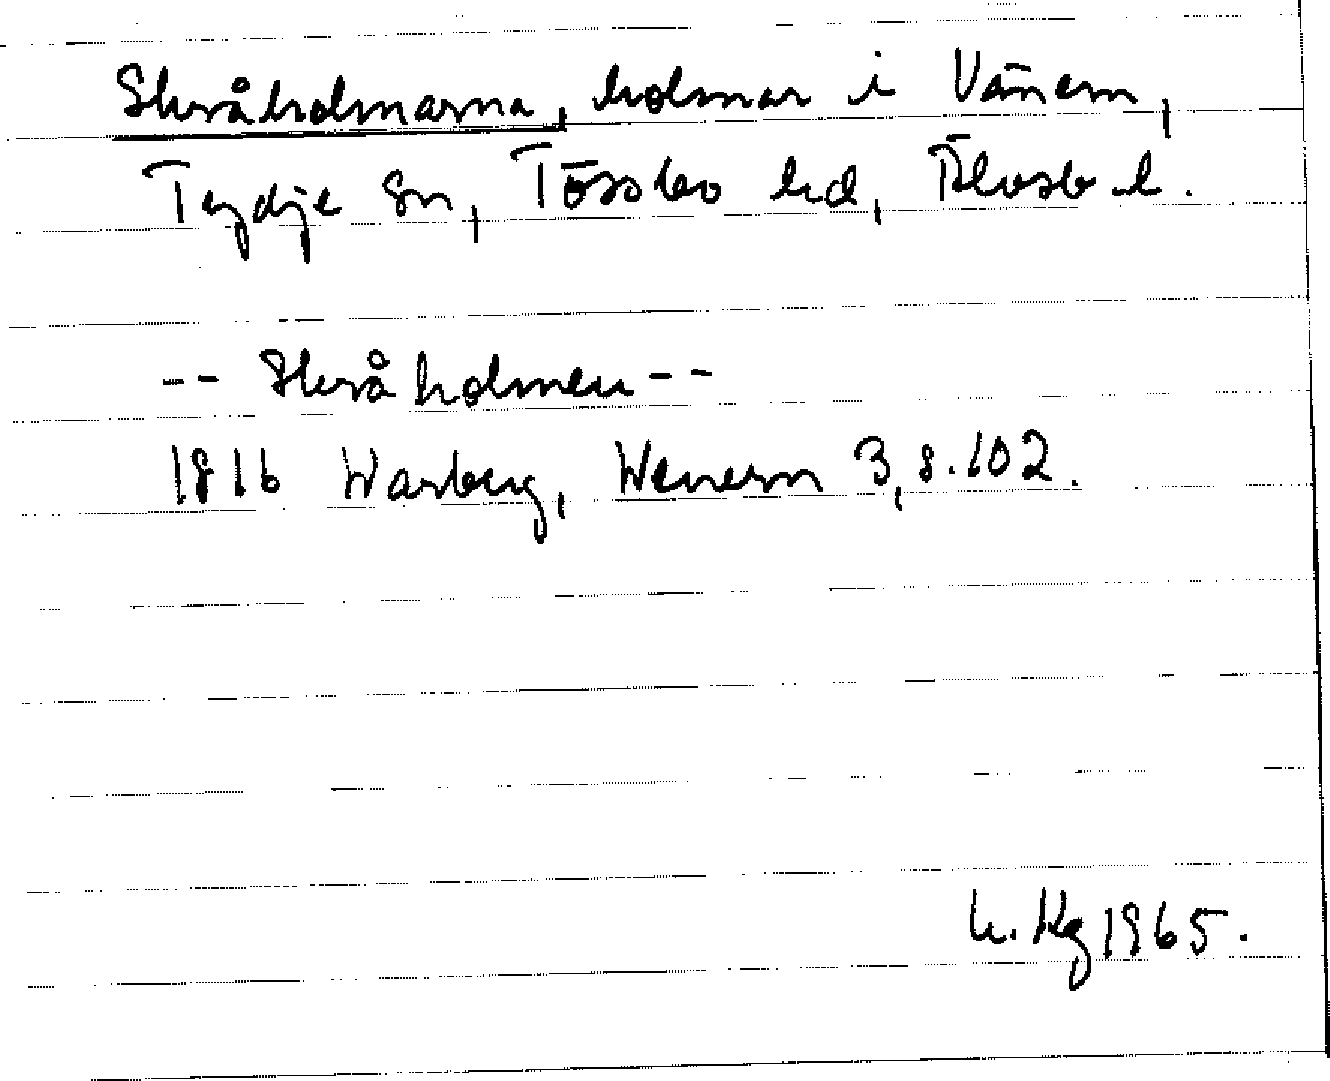 Skråholmarna, holmar i Vänern,
Tydje sn, Tössbo hd, Älvsb. l.
-- Skråholmen --
1816 Warberg, Wenern 3, s. 102.
1965.